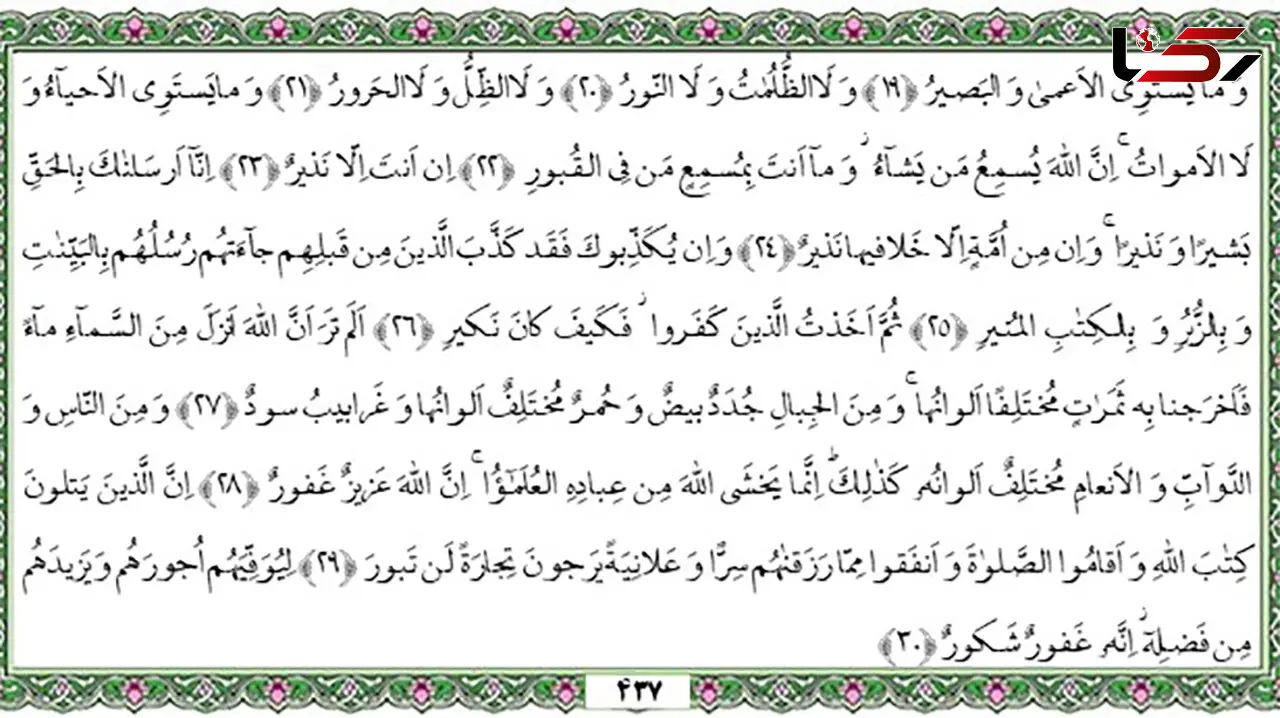 رکنا
وَ ما يَستَوِى الاَعمىٰ وَ البَصيرُ ﴿١٩﴾ وَ لَا الظُّلُمٰتُ وَ لَا النّورُ ﴿٢٠﴾ وَ لَا الظِّلُّ وَ لَا الحَرورُ ﴿٢١﴾ وَ ما يَستَوِى الاَحيآءُ وَ
لَا الاَمواتُ ۚ اِنَّ اللهَ يُسمِعُ مَن يَشآءُ ۖ وَ مآ اَنتَ بِمُسمِعٍ مَن فِى القُبورِ ﴿٢٢﴾ اِن اَنتَ اِلّا نَذيرٌ ﴿٢٣﴾ اِنّآ اَرسَلنٰكَ بِالحَقِّ
بَشيرًا وَ نَذيرًا ۚ وَ اِن مِن اُمَّةٍ اِلّا خَلا فيها نَذيرٌ ﴿٢٤﴾ وَ اِن يُكَذِّبوكَ فَقَد كَذَّبَ الَّذينَ مِن قَبلِهِم جآءَتهُم رُسُلُهُم بِالبَيِّنٰتِ
وَ بِالزُّبُرِ وَ بِالكِتٰبِ المُنيرِ ﴿٢٥﴾ ثُمَّ اَخَذتُ الَّذينَ كَفَروا ۖ فَكَيفَ كانَ نَكيرِ ﴿٢٦﴾ اَلَم تَرَ اَنَّ اللهَ اَنزَلَ مِنَ السَّمآءِ مآءً
فَاَخرَجنا بِه ثَمَرٰتٍ مُختَلِفًا اَلوانُها ۚ وَ مِنَ الجِبالِ جُدَدٌ بيضٌ وَ حُمرٌ مُختَلِفٌ اَلوانُها وَ غَرابيبُ سودٌ ﴿٢٧﴾ وَ مِنَ النّاسِ وَ
الدَّوآبِّ وَ الاَنعامِ مُختَلِفٌ اَلوانُه كَذٰلِكَ ۗ اِنَّما يَخشَى اللهَ مِن عِبادِهِ العُلَمٰٓؤُا ۚ اِنَّ اللهَ عَزيزٌ غَفورٌ ﴿٢٨﴾ اِنَّ الَّذينَ يَتلونَ
كِتٰبَ اللهِ وَ اَقامُوا الصَّلوٰةَ وَ اَنفَقوا مِمّا رَزَقنٰهُم سِرًّا وَ عَلانِيَةً يَرجونَ تِجارَةً لَن تَبورَ ﴿٢٩﴾ لِيُوَفِّيَهُم اُجورَهُم وَ يَزيدَهُم
مِن فَضلِهٓ ۚ اِنَّه غَفورٌ شَكورٌ ﴿٣٠﴾
۴۳۷